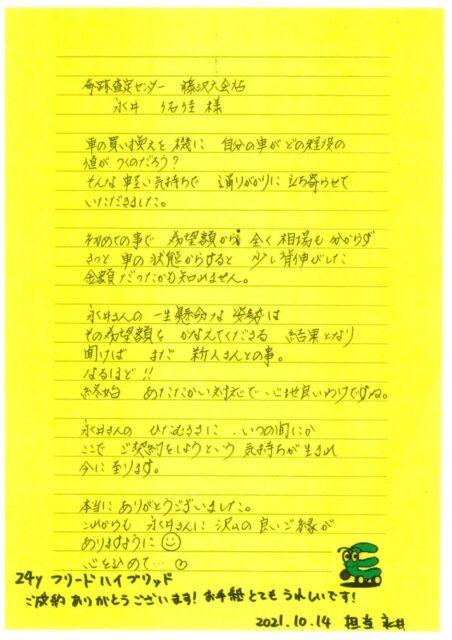 奇跡査定センター 藤沢大会𥙊
永井 様
車の買い換えを機に 自分の車がどの程度の
値がつくのだろう?
そんな軽い気持ちで 通りがかりに立ち寄らせて
いただきました。
初めての事で 希望額から 全く相場も分からず
きっと 車の状態からすると 少し背伸びした
金額だったかも知れません。
永井さんの 一生懸命な姿勢は
その希望額を かなえてくださる 結果となり
聞けば まだ 新人さんとの事。
なるほど!!
終始 あたたかい対応で 心地良いわけですね。
永井さんの ひたむきさに いつの間にか
ここで ご契約をしようという 気持ちが生まれ
今に至ります。
本当に ありがとうございました。
これからも 永井さんに 沢山の良いご縁が
ありますように
心を込めて…
24y フリードハイブリッド
ご成約ありがとうございます! お手紙とてもうれしいです!
2021.10.14 担当 永井